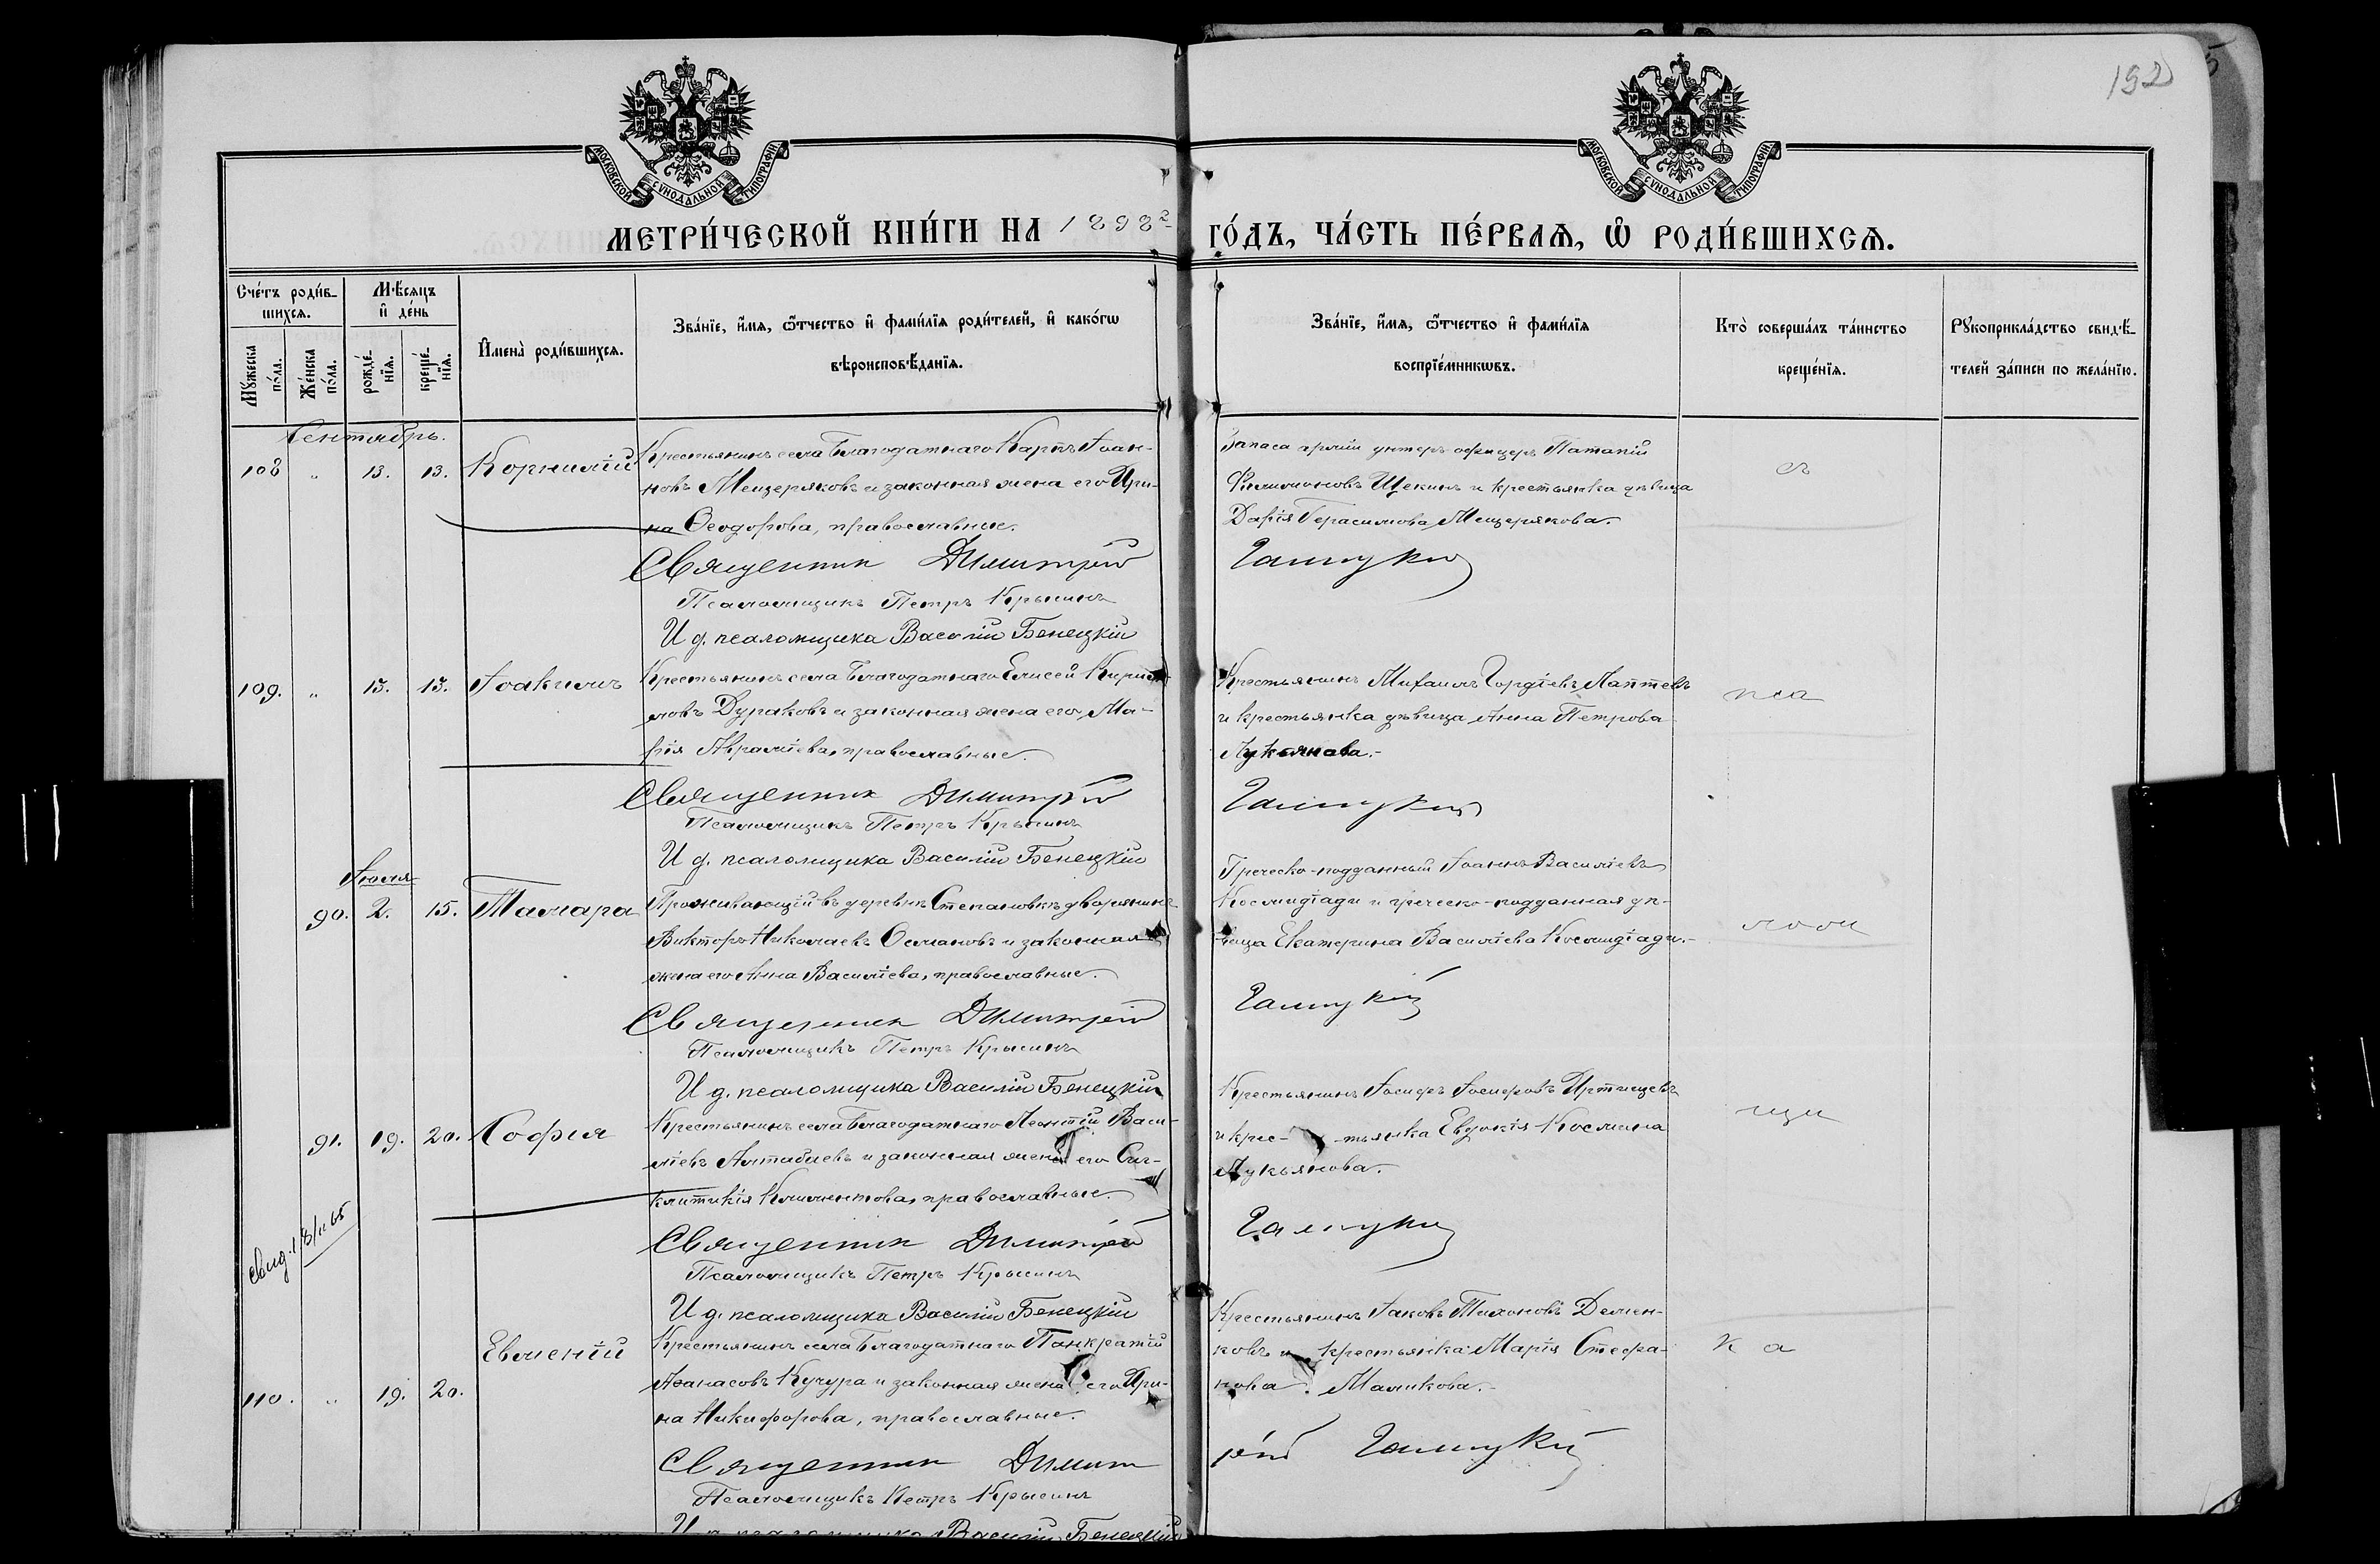 192
МОСКОВСКОЙ СѴНОДАЛЬНОЙ ТИПОГРАФІИ
МОСКОВСКОЙ СѴНОДАЛЬНОЙ ТИПОГРАФІИ
МЕТРИ́ЧЕСКОЙ КНИ́ГИ НА 1898 г. ГО́ДЪ, ЧА́СТЬ ПЕ́РВАѦ, Ѡ РОДИ́ВШИХСѦ.
Сче́тъ роди́в-
шихсѧ.
Мꙋ́жеска по́ла.
Же́нска по́ла.
Мѣ́сѧцъ
и҆ де́нь
рожде́нїѧ.
креще́нїѧ.
И҆мена̀ роди́вшихсѧ.
Зва́нїе, и҆́мѧ, ѻ҆́тчество и҆ фами́лїѧ роди́телей, и҆ како́гѡ
вѣроисповѣ́данїѧ.
Зва́нїе, и҆́мѧ, ѻ҆́тчество и҆ фами́лїѧ
воспрїе́мникѡвъ.
Кто̀ соверша́лъ та́инство
креще́нїѧ.
Рꙋкоприкла́дство свидѣ́-
телей за́писи по жела́нїю.
Сентябрь.
108 " 13. 13. Корнилій
Крестьянинъ села Благодатнаго Карпъ Іоан-
новъ Мещеряковъ и законная жена его Ири-
на Ѳеодорова, православные.
Священник Димитрій
Псаломщикъ Петръ Крысинъ
И д. псаломщика Василій Бенецкій
Запаса арміи унтеръ офицеръ Патапій
Филимоновъ Щекинъ и крестьянка дѣвица
Дарія Герасимова Мещерякова.
Галицкій
109. " 13. 13. Іоакимъ
Крестьянинъ села Благодатнаго Елисей Кирил-
ловъ Дураковъ и законная жена его Ма-
рія Авраміева, православные.
Священник Димитрій
Псаломщикъ Петръ Крысинъ
И д. псаломщика Василій Бенецкій
Крестьянинъ Михаилъ Гордіевъ Лаптевъ
и крестьянка дѣвица Анна Петрова
Лукьянова.-
Галицкій
пса
Іюля
90. 2. 15. Тамара
Проживающій въ деревнѣ Степановкѣ дворянинъ
Викторъ Николаевъ Османовъ и законная
жена его Анна Василіева, православные.
Священник Димитрій
Псаломщикъ Петръ Крысинъ
И д. псаломщика Василій Бенецкій
Греческо-подданный Іоаннъ Василіевъ
Космидіади и греческо-подданная дѣ-
вица Екатерина Василіева Космидіади.-
Галицкій
лом
91. 19. 20. Софія
Крестьянинъ села Благодатнаго Леонтій Васи-
ліевъ Алтабаевъ и законная жена его Син-
клитикія Климентова, православные.
Священник Димитрій
Псаломщикъ Петръ Крысинъ
И д. псаломщика Василій Бенецкій
Крестьянинъ Іосифъ Іосифовъ Иртищевъ
и крес- -тьянка Евдокія Космина
Лукьянова.
Галицкій
щи
110. " 19. 20. Евменій
Крестьянинъ села Благодатнаго Панкратій
Аѳанасовъ Кучура и законная жена его Ири-
на Никифорова, православные.
Священник Димит
Псаломщикъ Петръ Крысинъ
И д. псаломщика Василій Бенецкій
Крестьянинъ Іаковъ Тихоновъ Демен-
ковъ и крестьянка Марія Стефа-
нова Маликова.-
рій Галицкій
ка